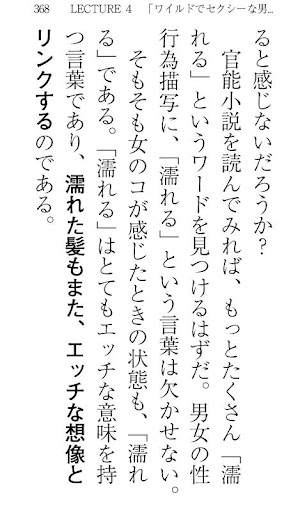 368 LECTURE 4 「ワイルドでセクシーな男...
ると感じないだろうか？
官能小説を読んでみれば、もっとたくさん「濡
れる」というワードを見つけるはずだ。男女の性
行為描写に、「濡れる」という言葉は欠かせない。
そもそも女のコが感じたときの状態も、「濡れ
る」である。「濡れる」はとてもエッチな意味を持
つ言葉であり、濡れた髪もまた、エッチな想像と
リンクするのである。